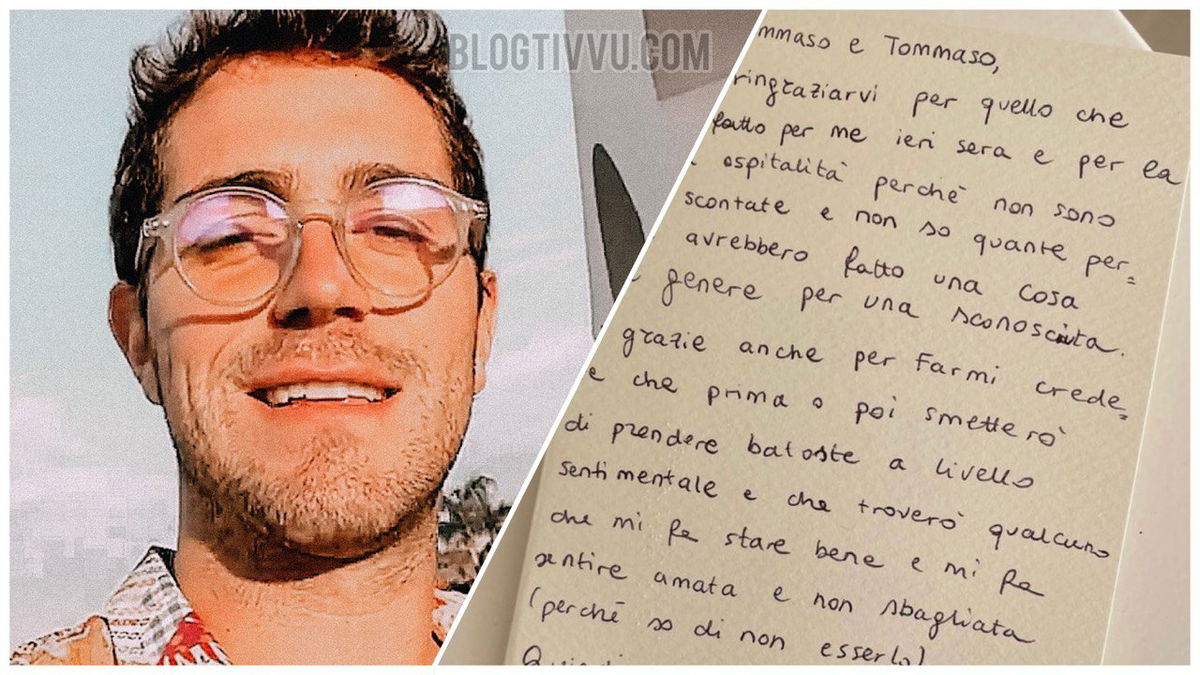 BLOGTIVVU.COM
mmaso e Tommaso,
ringraziarvi per quello che
fatto per me ieri sera e per la
ospitalità perché non sono
scontate e non so quante per=
avrebbero fatto una cosa
genere per una sconosciuta.
grazie anche per farmi crede=
e che prima o poi smetterò
di prendere batoste a livello
sentimentale e che troverò qualcuno
che mi fa stare bene e mi fa
sentire amata e non sbagliata
(perché so di non esserlo)